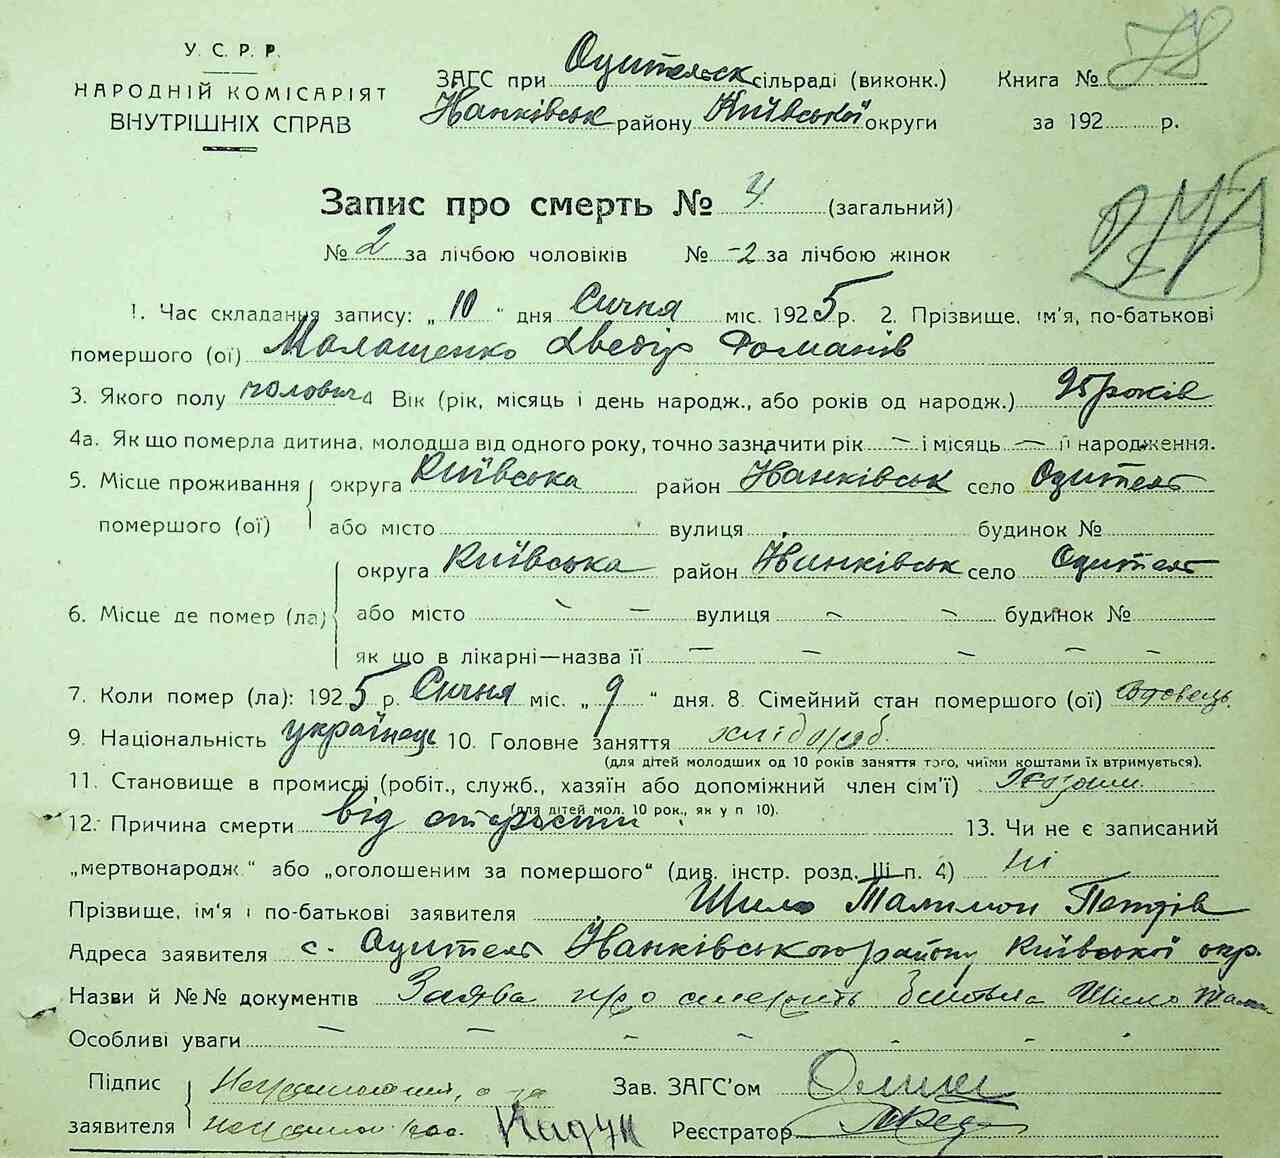 У. С. Р. Р.
НАРОДНІЙ КОМІСАРІЯТ
ВНУТРІШНІХ СПРАВ
ЗАГС при Одительск сільраді (виконк.)
Іванківськ району Київської округи
Книга № 78
за 192 р.
Запис про смерть № 4 (загальний)
№ 2 за лічбою чоловіків № -2 за лічбою жінок
1. Час складання запису: „ 10 “ дня Січня міс. 1925 р. 2. Прізвище, ім'я, по-батькові
помершого (ої) Малащенко Романів
3. Якого полу чоловіча Вік (рік, місяць і день народж., або років од народж.) 95 років
4а. Як що померла дитина, молодша від одного року, точно зазначити рік — і місяць — її народження.
5. Місце проживання округа Київська район Іванківськ село Одителя
помершого (ої) або місто вулиця будинок №
округа Київська район Іванківськ село Одителя
6. Місце де помер (ла) або місто — — вулиця — — будинок №
як що в лікарні—назва її — — — — — —
7. Коли помер (ла): 1925 р. Січня міс. „ 9 “ дня. 8. Сімейний стан помершого (ої) вдовець
9. Національність українець 10. Головне заняття хлібороб.
(для дітей молодших од 10 років заняття того, чиїми коштами їх втримується).
11. Становище в промислі (робіт., служб., хазяїн або допоміжний член сім'ї) Хазяїн
(для дітей мол. 10 рок., як у п 10).
12. Причина смерти від старости 13. Чи не є записаний
„мертвонародж“ або „оголошеним за помершого“ (див. інстр. розд. III п. 4) ні
Прізвище, ім'я і по-батькові заявителя Шило Талимон Петрів
Адреса заявителя с. Одителя Іванківського району Київської окр.
Назви й №№ документів Заява про смерть Шило
Особливі уваги — — — — — —
Підпис Неграмотний, а за Зав. ЗАГС'ом
заявителя Кадун Реєстратор